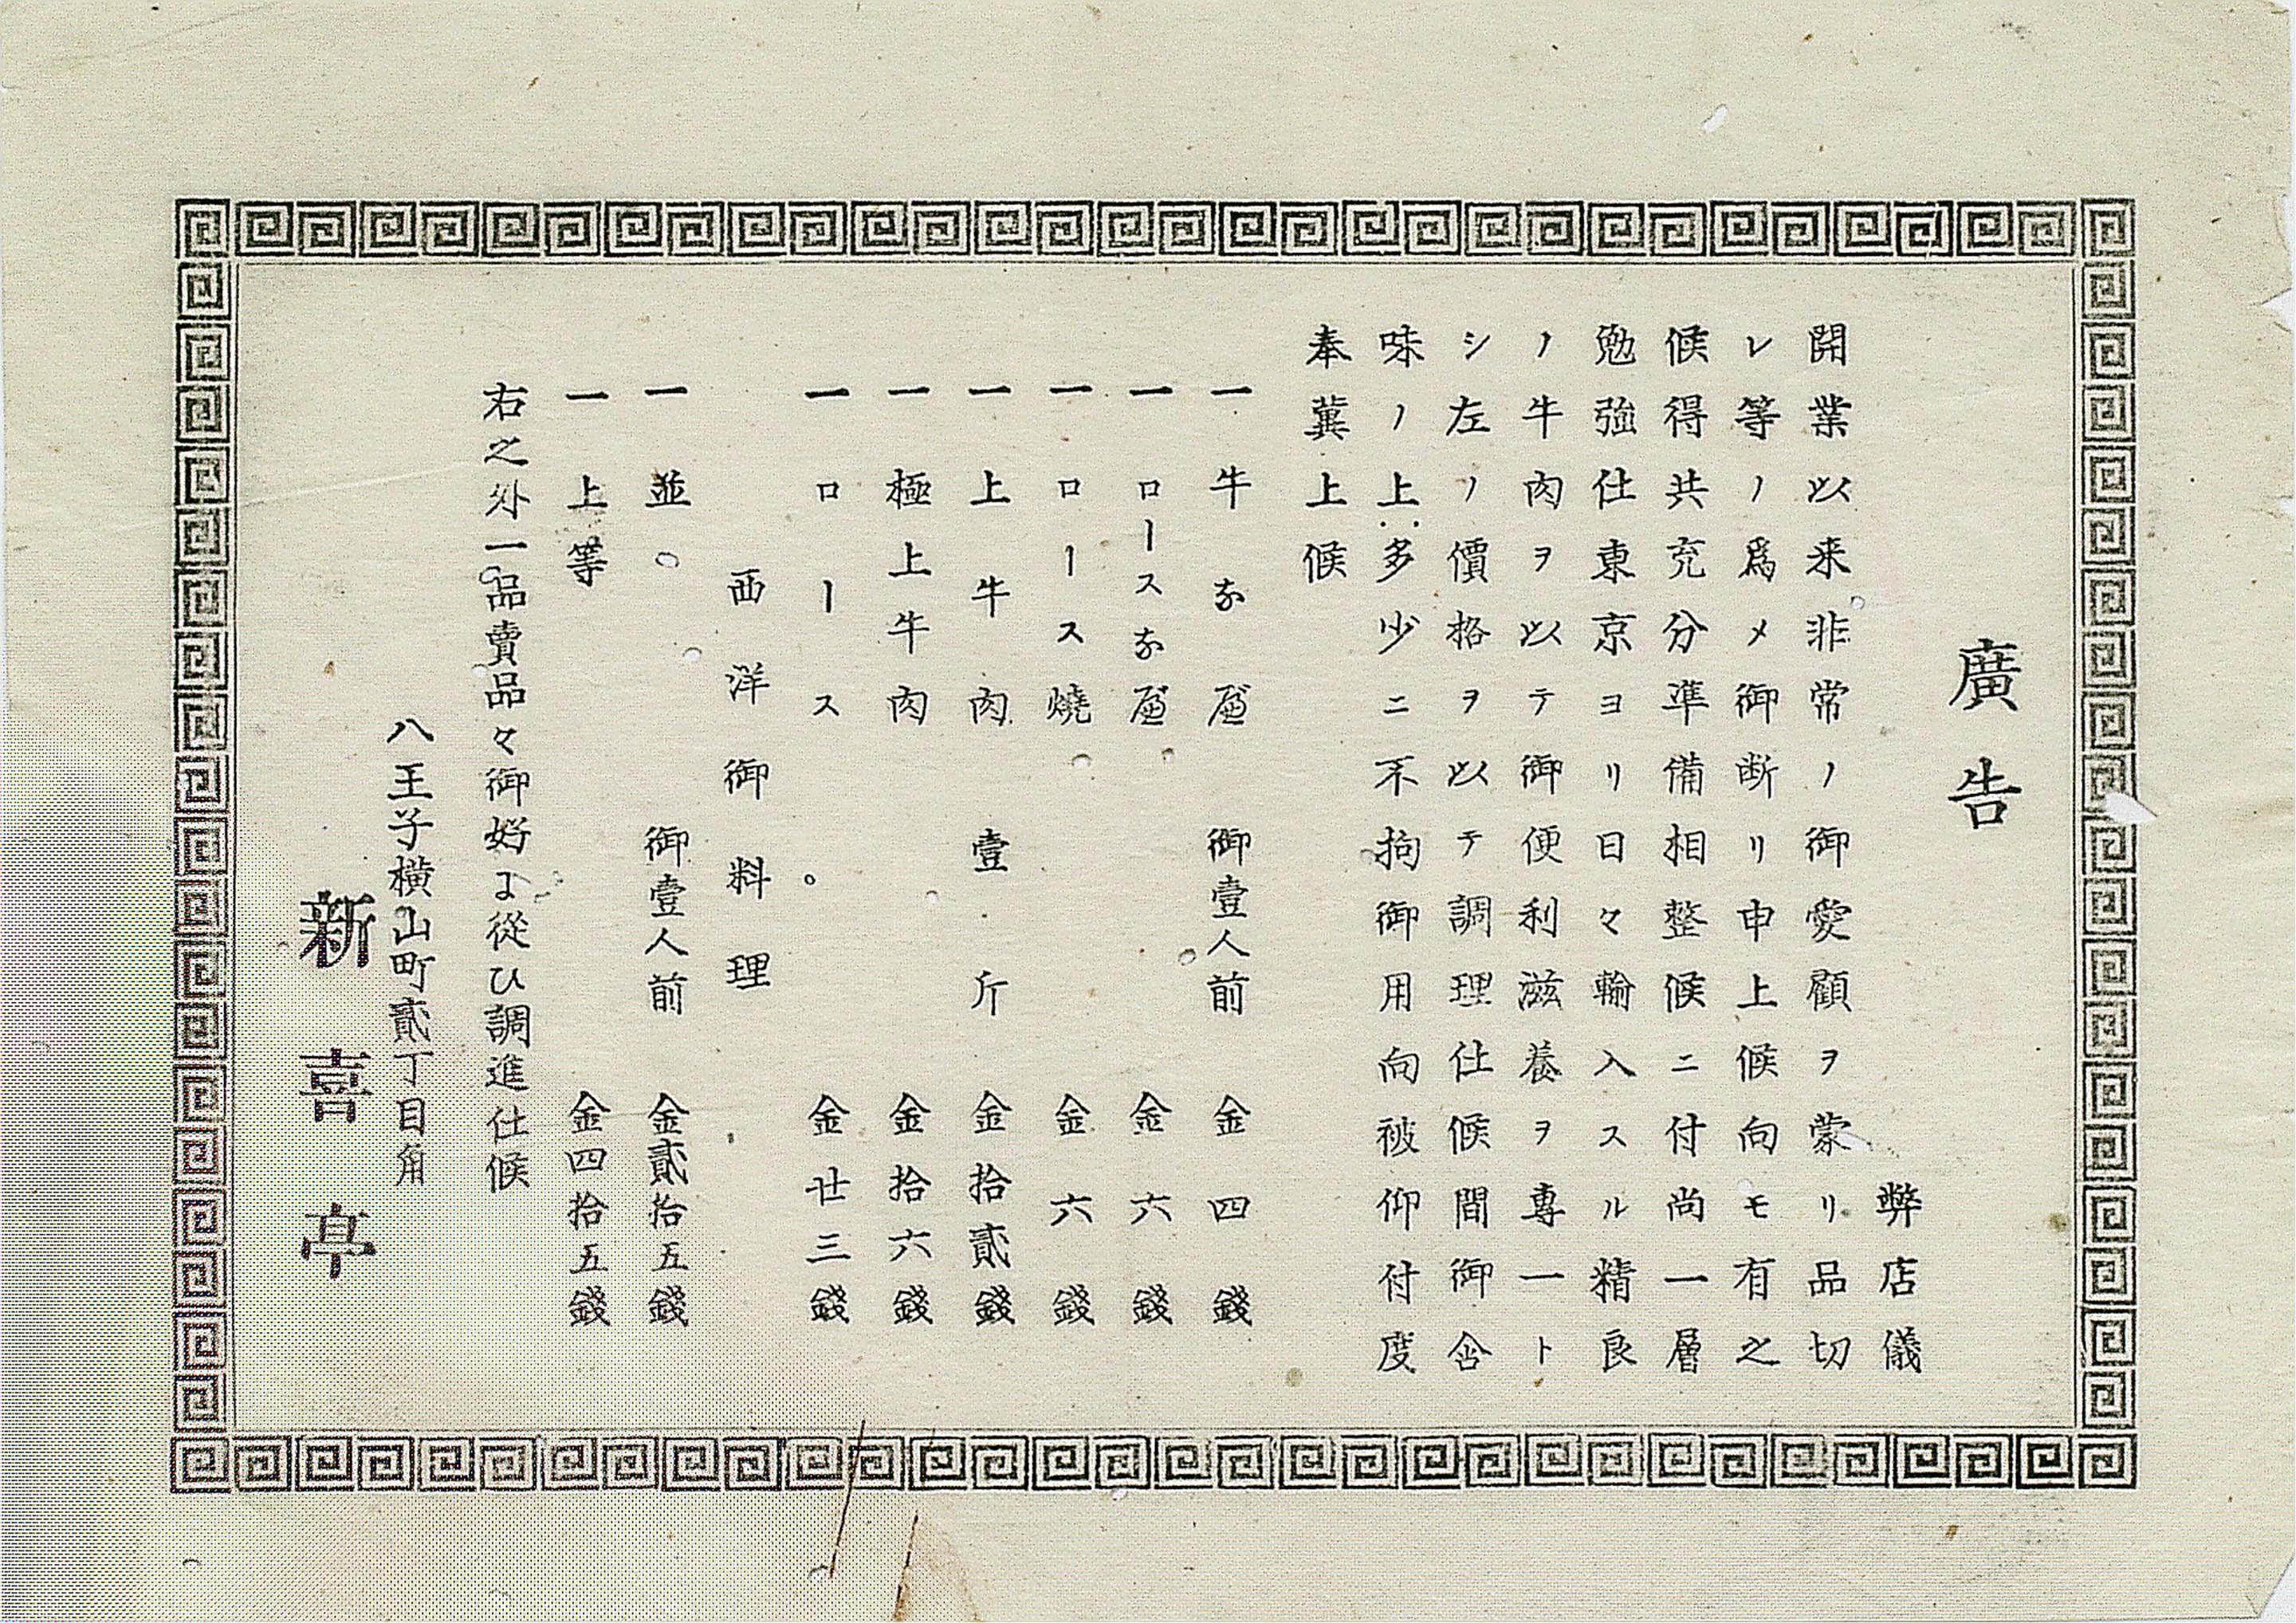 廣告
弊店儀
開業以来非常ノ御愛顧ヲ蒙リ品切
レ等ノ爲メ御断リ申上候向モ有之
候得共充分準備相整候ニ付尚一層
勉強仕東京ヨリ日々輸入スル精良
ノ牛肉ヲ以テ御便利滋養ヲ專一ト
シ左ノ價格ヲ以テ調理仕候間御含
味ノ上多少ニ不拘御用向被仰付度
奉冀上候
一 牛なべ 御壹人前 金四錢
一 ロースなべ 金六錢
一 ロース燒 金六錢
一 上牛肉 壹斤 金拾貳錢
一 極上牛肉 金拾六錢
一 ロース 金廿三錢
西洋御料理
一 並 御壹人前 金貳拾五錢
一 上等 金四拾五錢
右之外一品賣品々御好よ從ひ調進仕候
八王子横山町貳丁目角
新喜亭